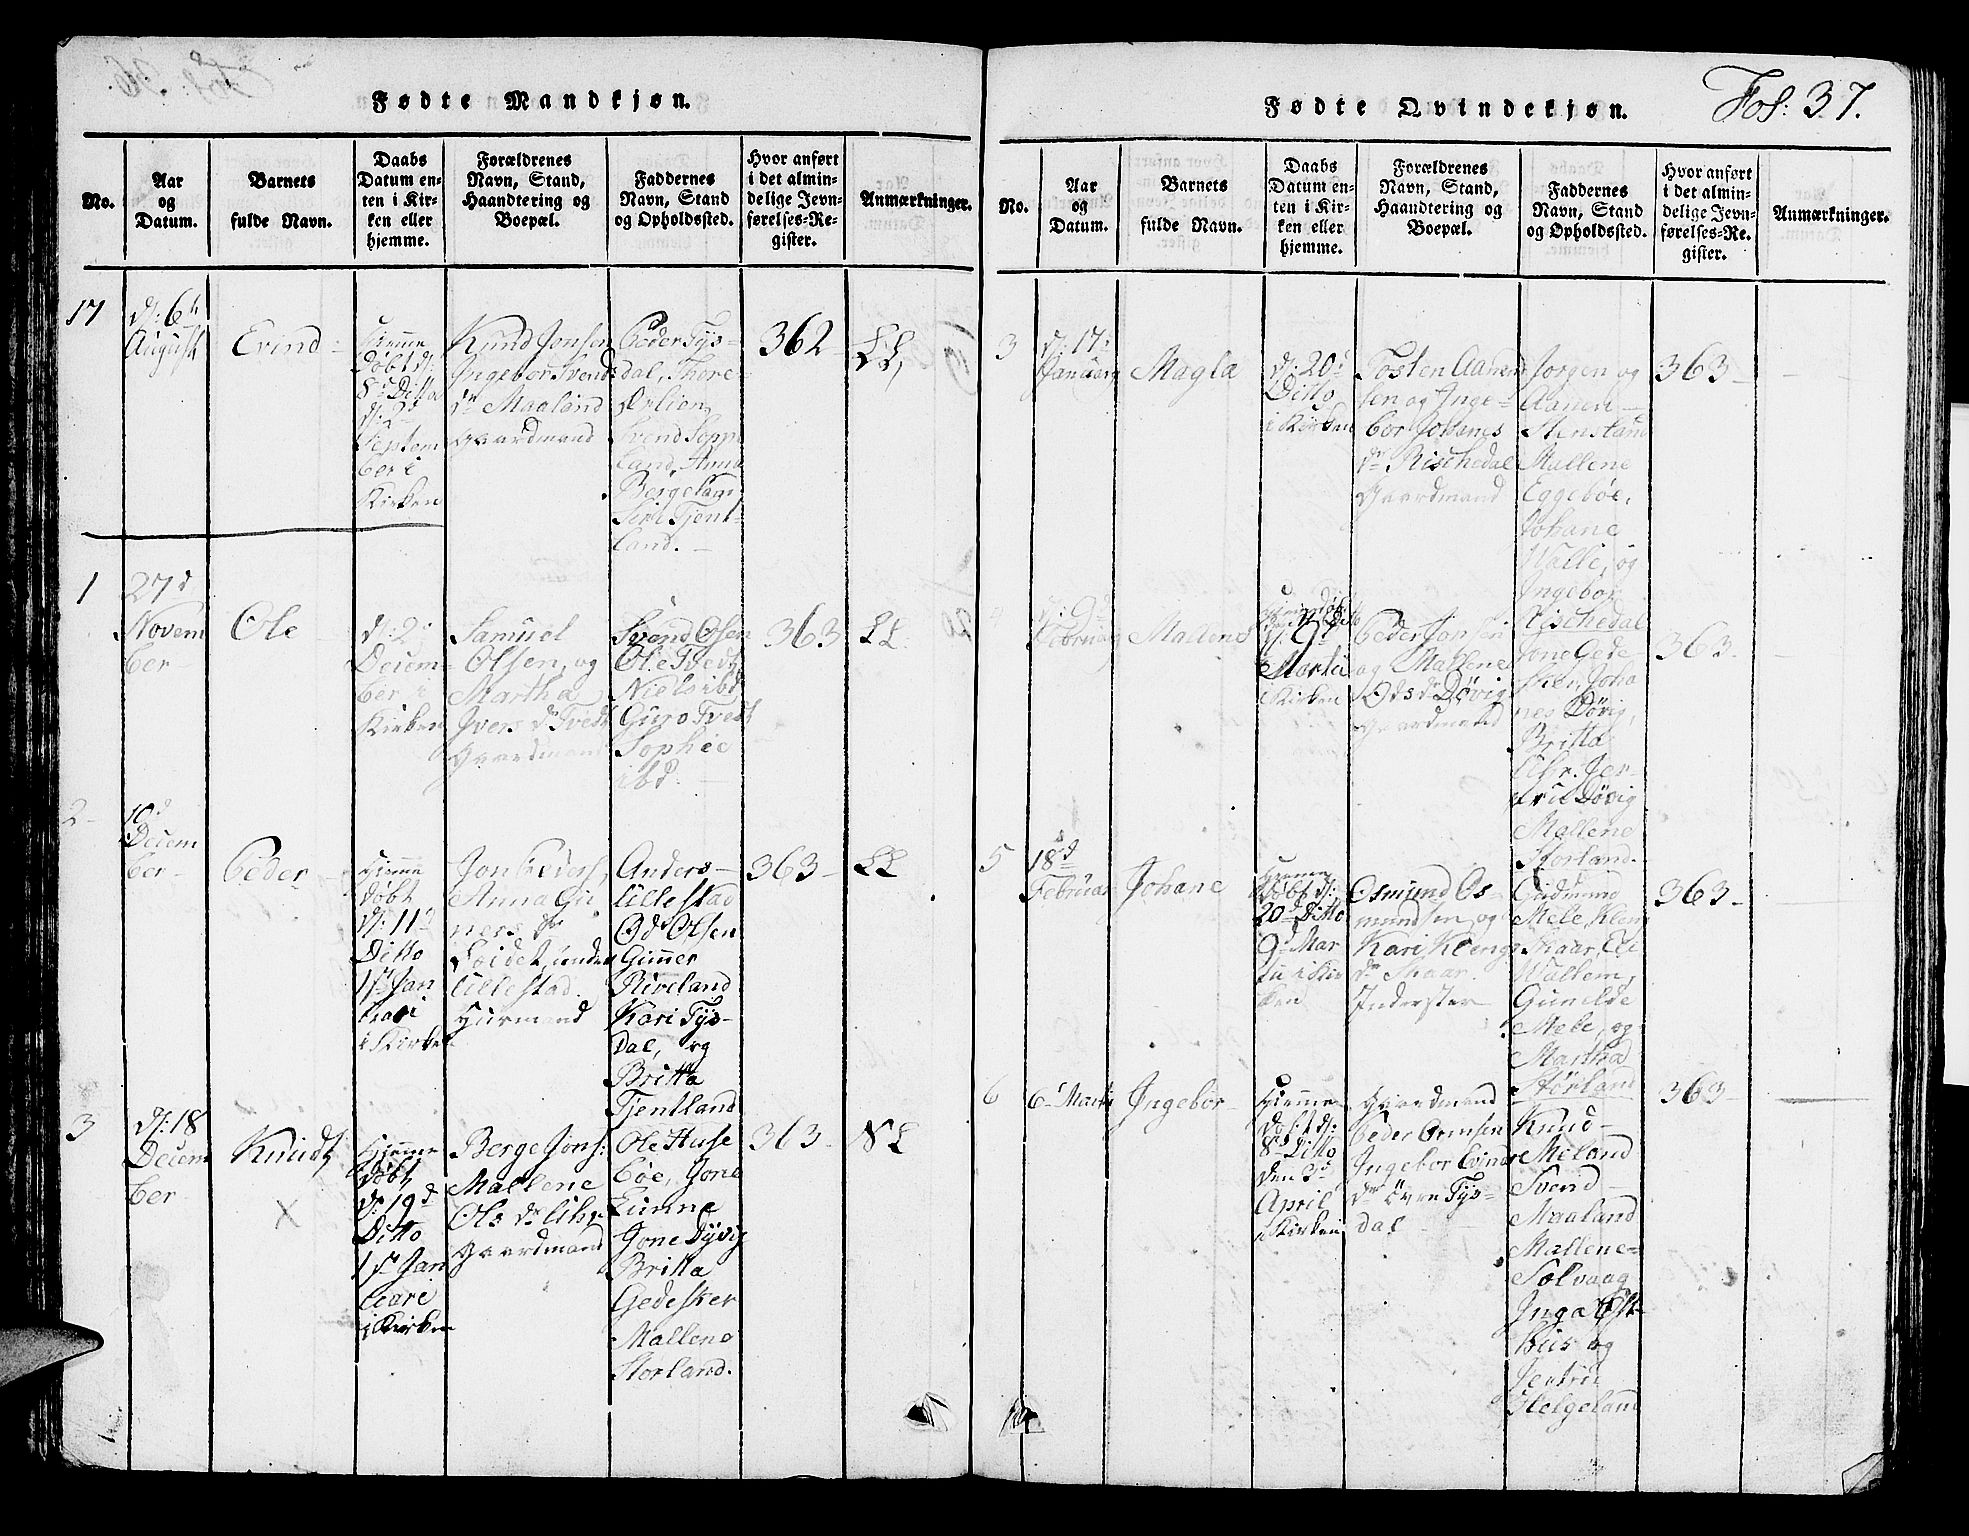 Fødte Mandkjøn.
No.
Aar
og
Datum.
Barnets
fulde Navn.
Daabs
Datum en-
ten i Kir-
ken eller
hjemme.
Forældrenes
Navn, Stand,
Haandtering og
Boepæl.
Faddernes
Navn, Stand
og Opholdssted.
Hvor anført
i det almin-
delige Jevn-
førelses-Re-
gister.
Anmærkninger.
17
d: 6t
August
Evind
Hiemme
Døbt d:
8de Ditto
d: 2d
Septem
ber i
Kirken
Knud Jonsen
Ingebor Svends
dr Maaland
Gaardmand
Peder Tys-
dal, Thore
Ørlien
Svend Sopp
land, Anna
Bergeland
Siri Tjent-
land.
362
LL
1
27d
Novem
ber
Ole
d: 2
Decem-
ber i
Kirken
Samuel
Olsen, og
Martha
Ivers dr Tvedt
Gaardmand
Svend Olsen
Ole Tvedt
Niels ibd
Guro Tvedt
Sophie
ibd.
363
LL
2
10d
Decem
ber
Peder
Hiemme
døbt
d: 11d
Ditto
1st Jan
uari
i Kirken
Jon Peders
Anna Gu
ners dr
Eidet, under
Lillestad
Huusmand
Anders
Lillestad
Od Olsen
Gunner
Riveland
Kari Tys-
dal, og
Britta
Tjentland
363
LL
3
d: 18
Decem
ber
Knudt
X
Hjemme
døbt
d: 19d
Ditto
1st Jan
uari
i Kirken
Berge Jons:
Mallene
Ols dr
Gaardmand
Ole Huse
bøe, Jone
Jone Dyvig
Britta
Gedesker
Mallene
Storland.
363
SL
Fødte Qvindekjøn.
Fol: 37.
No.
Aar
og
Datum.
Barnets
fulde Navn.
Daabs
Datum en-
ten i Kir-
ken eller
hjemme.
Forældrenes
Navn, Stand,
Haandtering og
Boepæl.
Faddernes
Navn, Stand
og Opholdssted.
Hvor anført
i det almin-
delige Jevn-
førelses-Re-
gister.
Anmærkninger.
3
d: 17
Januarij
Magla
d: 20
Ditto
i Kirken
Tosten Aanend
sen og Inge-
bor Johanes
dr Rischedal
Gaardmand
Jorgen og
Aanen
Stensland
Mallene
Eggebøe,
Johane
Walle, og
Ingebor
Rischedal
363
4
d: 9d
Februarij
Mallene
d: 9d
Martii
i Kirken
Peder Jonsen
og Mallene
Ods dr Døvig
Gaardmand
Jone Gede-
sker, Joha
nes Døvig,
Britta
Døvig
Mallene
Storland.
363
5
18d
Februar
Johane
Hiemme
døbt d:
20d Ditto
9d Mar
tii i Kir
ken
Osmund Os-
mundsen, og
Kari Klengs
dr Skaar
Inderster
Gudmund
Mele, Kleng
Skaar, Eli
Wallem,
Gunelde
Mele, og
Martha
Storland
363
6
6 Martij
Ingebor
Hiemme
døbt d:
8de Ditto
den 3d
April
i Kirken
Gaardmand
Peder Ormsen
Ingebor Evinds
dr Øvre Tys-
dal
Knud
Meland
Svend
Maaland
Mallene
Solvaag
Inga Øst-
hus og
Jertrud
Helgeland
363